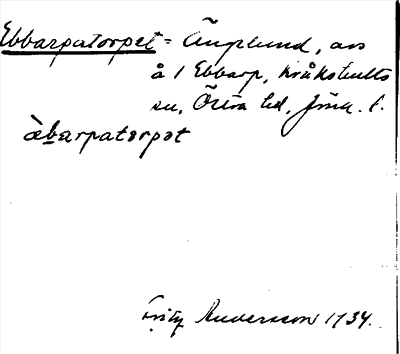 Ebbarpatorpet = Änglund, avs
å 1 Ebbarp, Kråkshults
sn, Östra hd, Jönk. l.
àbarpatorpət
Fritz Andersson 1934.